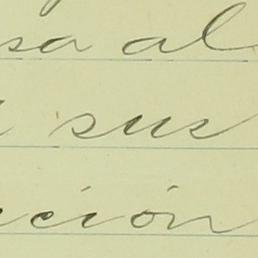 sa al
sus
ción